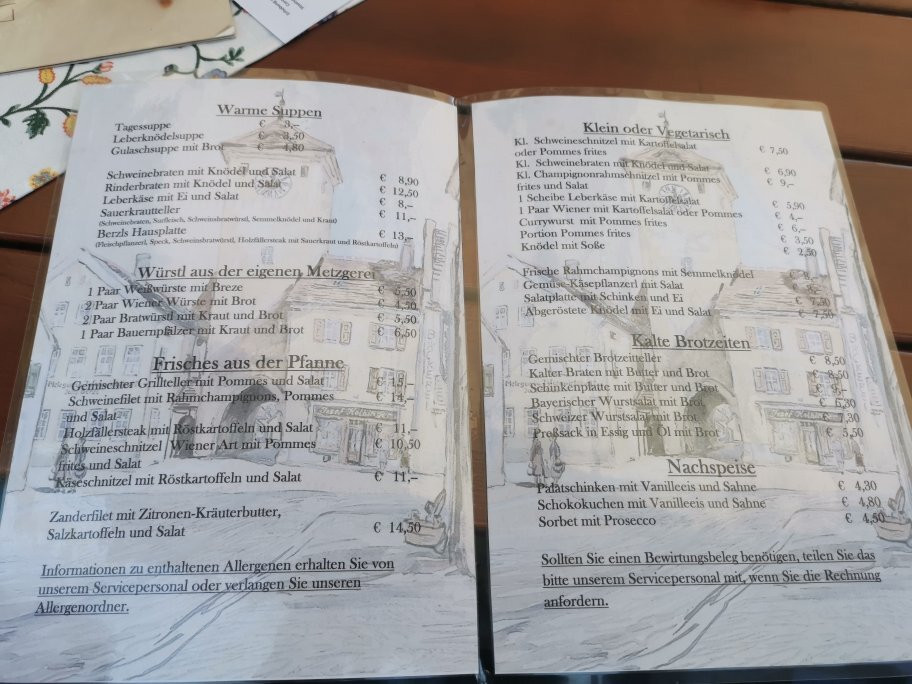 Warme Suppen
Tagessuppe € 3,–
Leberknödelsuppe € 3,50
Gulaschsuppe mit Brot € 4,80
Schweinebraten mit Knödel und Salat € 8,90
Rinderbraten mit Knödel und Salat € 12,50
Leberkäse mit Ei und Salat € 8,–
Sauerkrautteller € 11,–
(Schweinebraten, Surfleisch, Schweinsbratwürstl, Semmelknödel und Kraut)
Berzls Hausplatte € 13,–
(Fleischpflanzel, Speck, Schweinsbratwürstl, Holzfällersteak mit Sauerkraut und Röstkartoffeln)
Würstl aus der eigenen Metzgerei
1 Paar Weißwürste mit Breze €
2 Paar Wiener Würste mit Brot € 4,50
2 Paar Bratwürstl mit Kraut und Brot € 5,50
1 Paar Bauernpfälzer mit Kraut und Brot € 6,50
Frisches aus der Pfanne
Gemischter Grillteller mit Pommes und Salat € 15,–
Schweinefilet mit Rahmchampignons, Pommes € 14,–
und Salat
Holzfällersteak mit Röstkartoffeln und Salat € 11,–
Schweineschnitzel Wiener Art mit Pommes € 10,50
frites und Salat
Käseschnitzel mit Röstkartoffeln und Salat € 11,–
Zanderfilet mit Zitronen-Kräuterbutter,
Salzkartoffeln und Salat € 14,50
Informationen zu enthaltenen Allergenen erhalten Sie von
unserem Servicepersonal oder verlangen Sie unseren
Allergenordner.
Klein oder Vegetarisch
Kl. Schweineschnitzel mit Kartoffelsalat
oder Pommes frites € 7,50
Kl. Schweinebraten mit Knödel und Salat € 6,90
Kl. Champignonrahmschnitzel mit Pommes € 9,–
frites und Salat
1 Scheibe Leberkäse mit Kartoffelsalat € 5,90
1 Paar Wiener mit Kartoffelsalat oder Pommes € 4,–
Currywurst mit Pommes frites € 6,–
Portion Pommes frites € 3,50
Knödel mit Soße € 2,50
Frische Rahmchampignons mit Semmelknödel
Gemüse-Käsepflanzel mit Salat €
Salatplatte mit Schinken und Ei € 7,50
Abgeröstete Knödel mit Ei und Salat € 7,50
Kalte Brotzeiten
Gemischter Brotzeitteller € 8,50
Kalter Braten mit Butter und Brot € 8,50
Schinkenplatte mit Butter und Brot € 9,–
Bayerischer Wurstsalat mit Brot € 6,30
Schweizer Wurstsalat mit Brot € 7,30
Preßsack in Essig und Öl mit Brot € 5,50
Nachspeise
Palatschinken mit Vanilleeis und Sahne € 4,30
Schokokuchen mit Vanilleeis und Sahne € 4,80
Sorbet mit Prosecco € 4,50
Sollten Sie einen Bewirtungsbeleg benötigen, teilen Sie das
bitte unserem Servicepersonal mit, wenn Sie die Rechnung
anfordern.